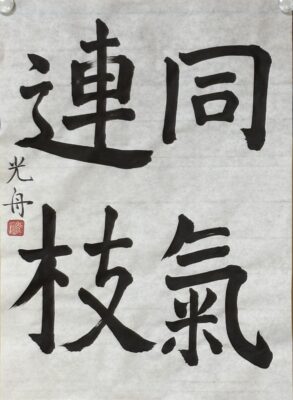 同氣
連枝
光舟